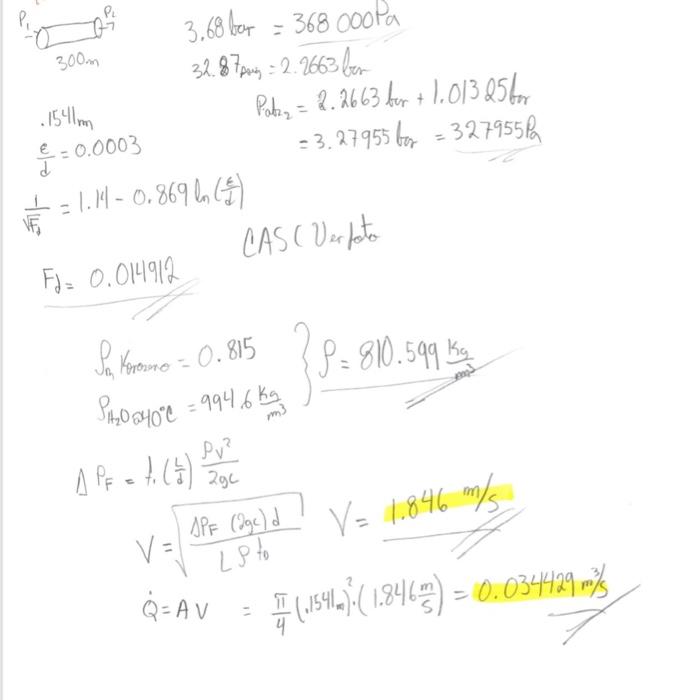 P₁ P₂
300m
3.68 bar = 368 000Pa
32.87psig = 2.2663 bar
Pabs₂ = 2.2663 bar + 1.01325bar
= 3.27955 bar = 327955Pa
.1541m
ε/d = 0.0003
1/√Fd = 1.14 - 0.869 ln(ε/d)
CAS (Ver foto
Fd = 0.014912
ρr, Keroseno = 0.815
ρH₂O@40°C = 994.6 Kg/m³
} ρ = 810.599 Kg/m³
ΔPF = f. (L/d) ρv²/2gc
V = √(ΔPF (2gc) d / L ρ fd)
V = 1.846 m/s
Q̇ = A V = π/4 (.1541m)² · (1.846 m/s) = 0.034429 m³/s